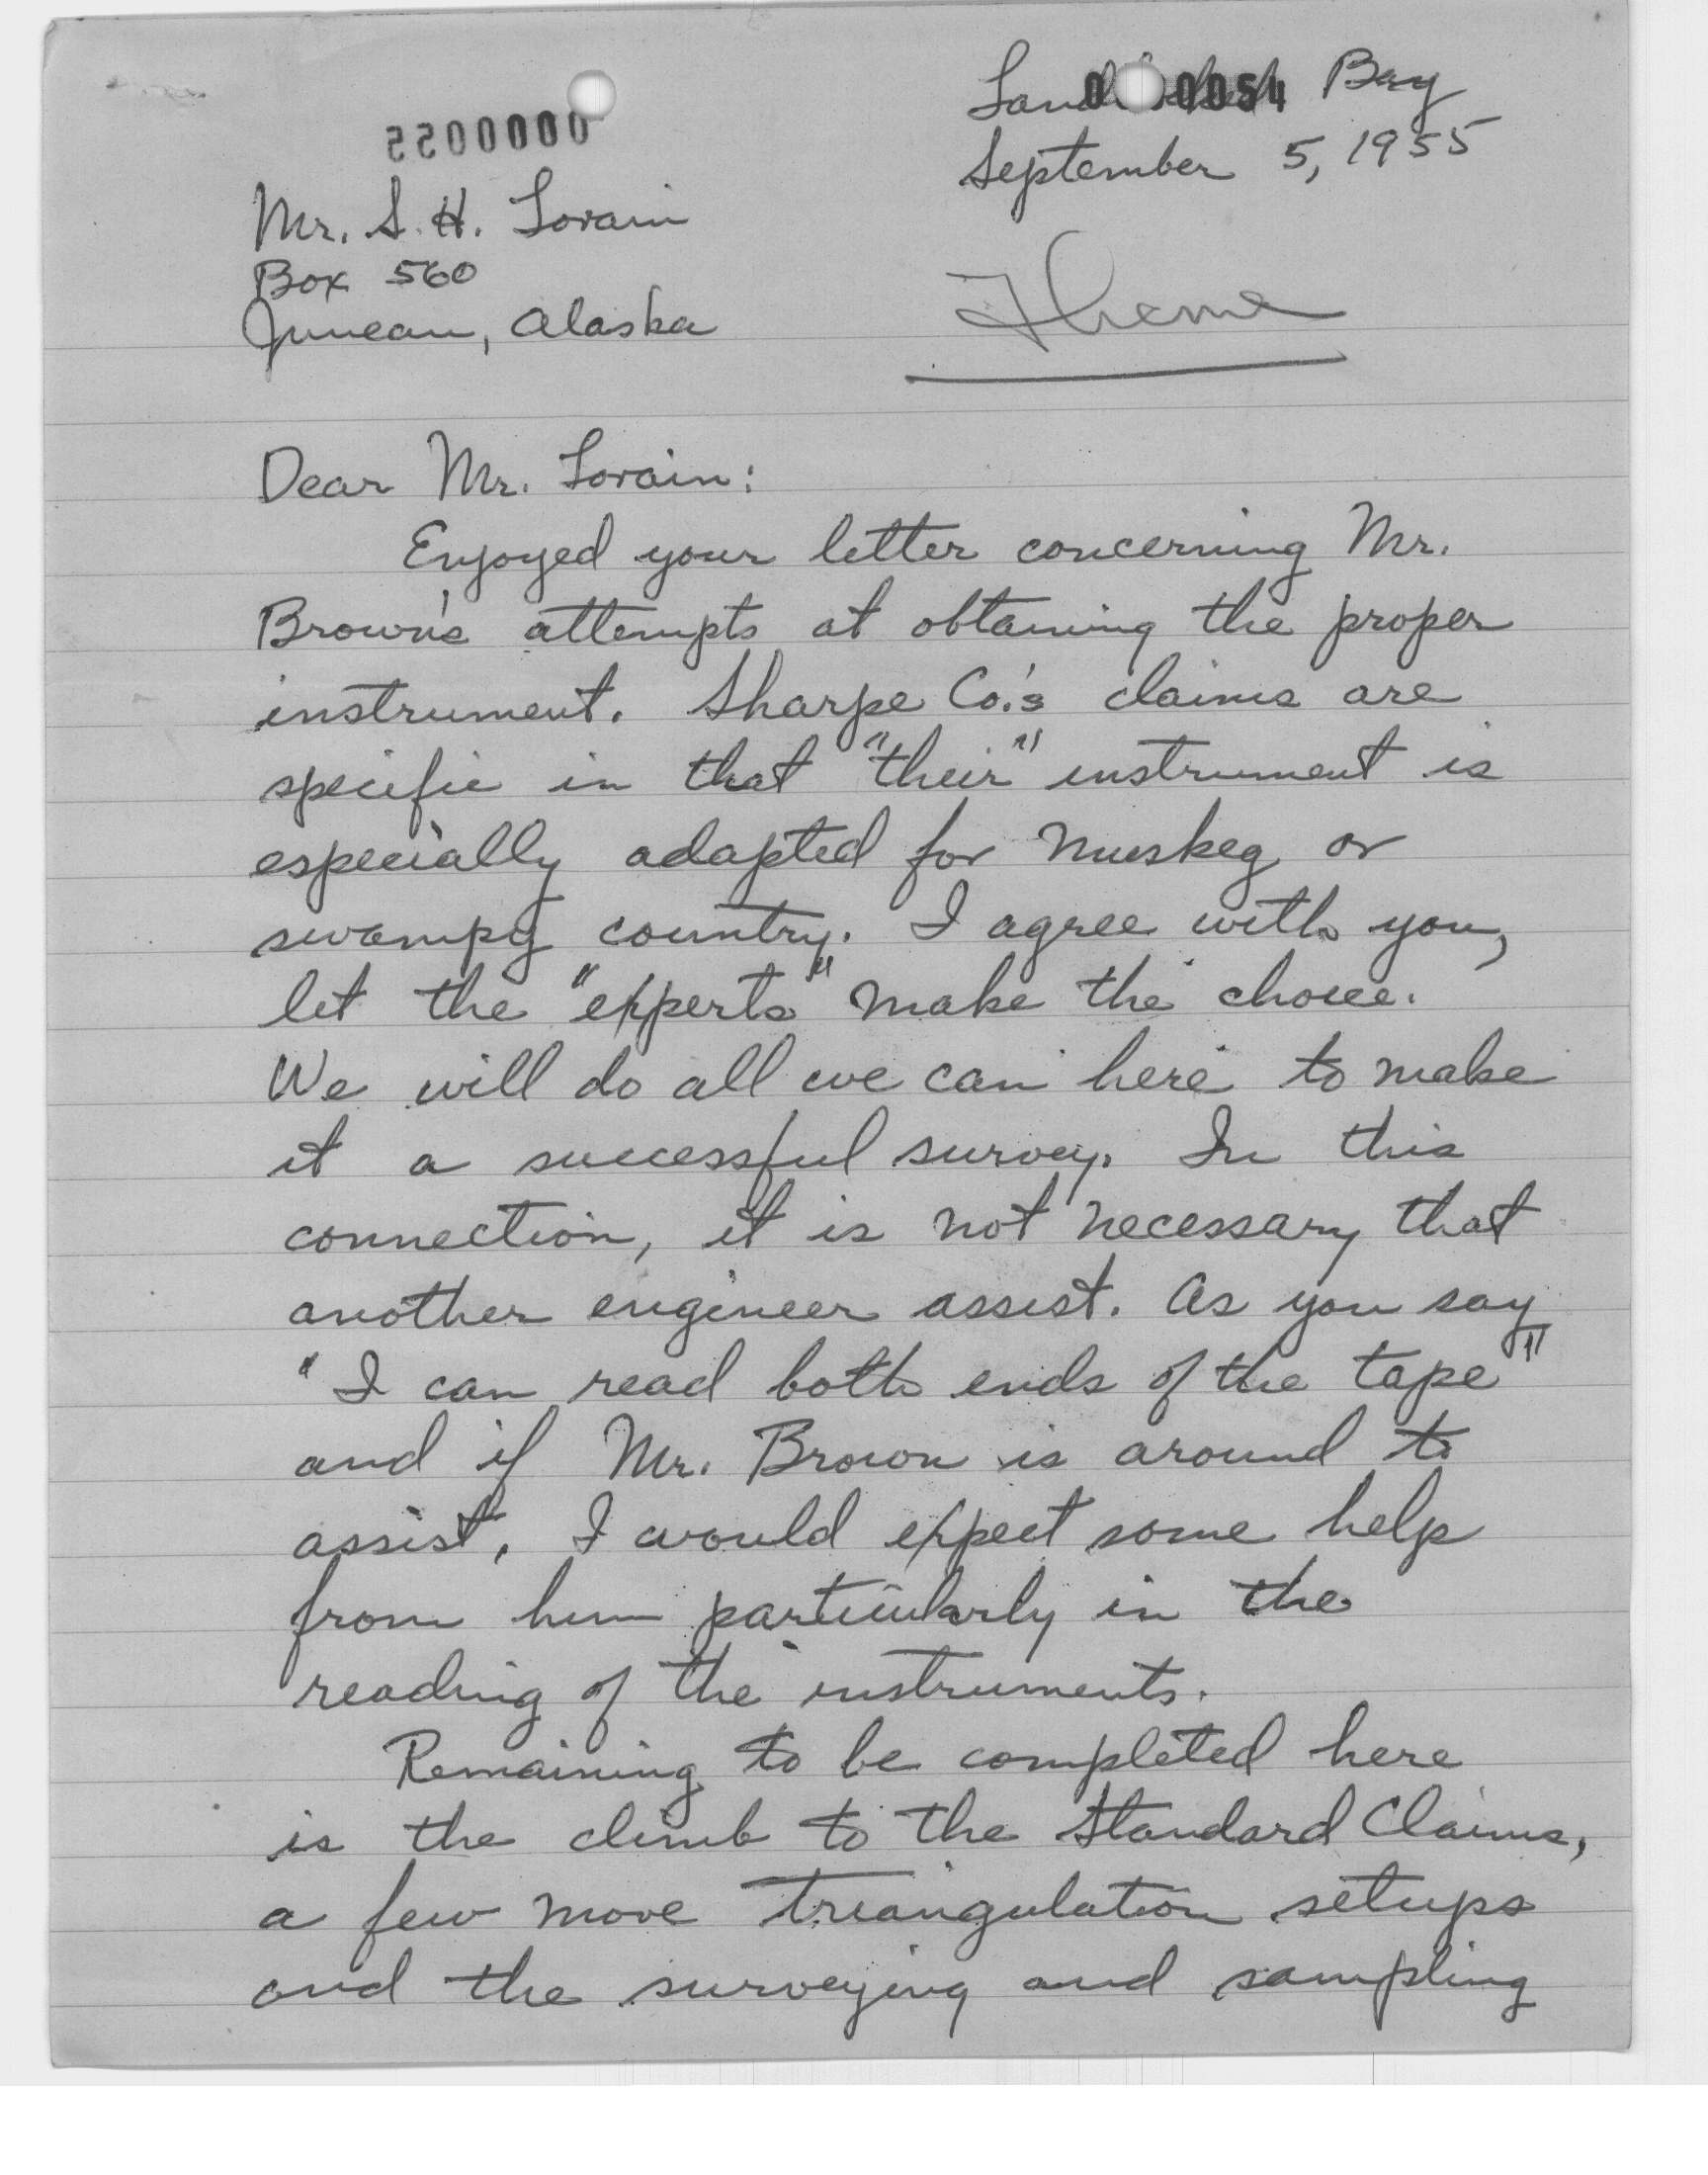 0 0054 Bay
September 5, 1955
0000055
Mr. S. H. Lorain
Box 560
Juneau, Alaska
Dear Mr. Lorain:
Enjoyed your letter concerning Mr.
Brown's attempts at obtaining the proper
instrument. Sharpe Co.'s claims are
specific in that "their" instrument is
especially adapted for muskeg or
swampy country. I agree with you,
let the "experts" make the choice.
We will do all we can here to make
it a successful survey. In this
connection, it is not necessary that
another engineer assist. As you say
"I can read both ends of the tape"
and if Mr. Brown is around to
assist, I would expect some help
from him particularly in the
reading of the instruments.
Remaining to be completed here
is the climb to the Standard Claims,
a few more triangulation setups
and the surveying and sampling